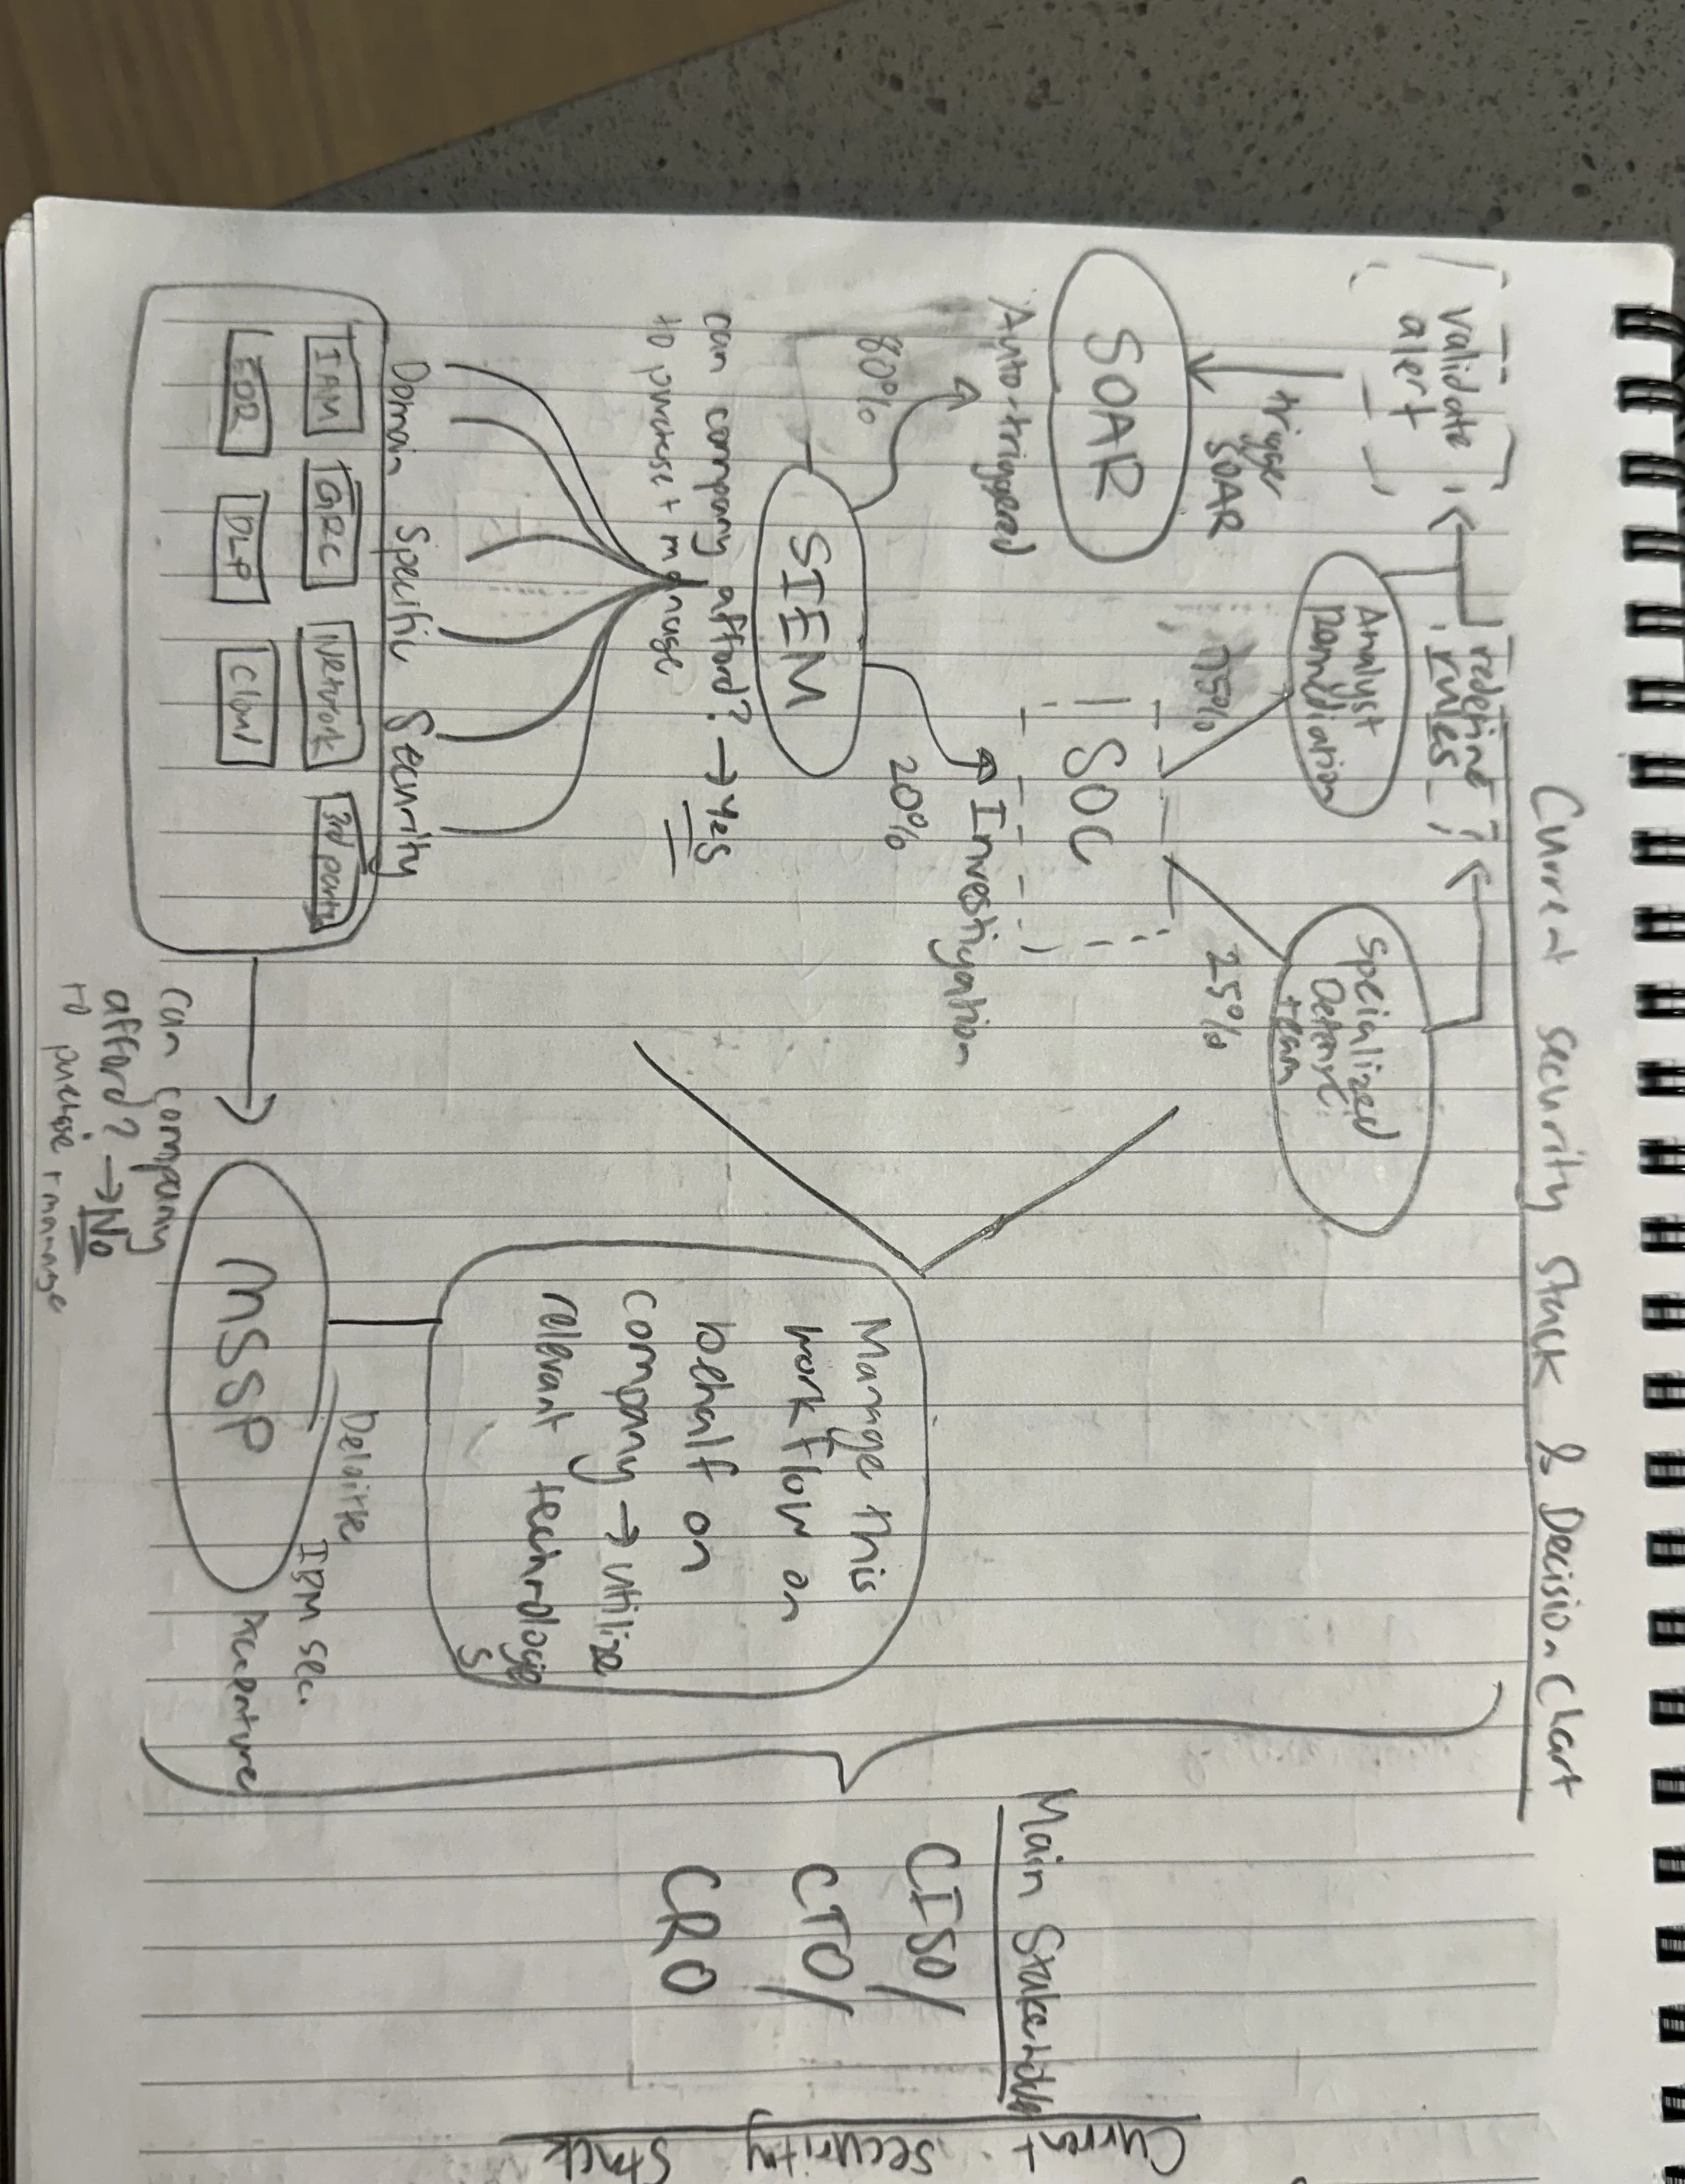 Current security stack & Decision Chart
validate
alert
redefine
rules
trigger
SOAR
Analyst
Specialized
team
75%
25%
SOAR
SOC
Auto-triggered
Investigation
80%
20%
SIEM
can company afford? → Yes
to purchase + manage
Domain Specific Security
IAM
GRC
Network
3rd party
EDR
DLP
Cloud
can company
afford? → No
to purchase + manage
MSSP
Deloitte
IBM sec.
Accenture
Manage this
workflow on
behalf on
company → utilize
relevant technologies
Main Stakeholders
CISO/
CTO/
CRO
Current security Stack